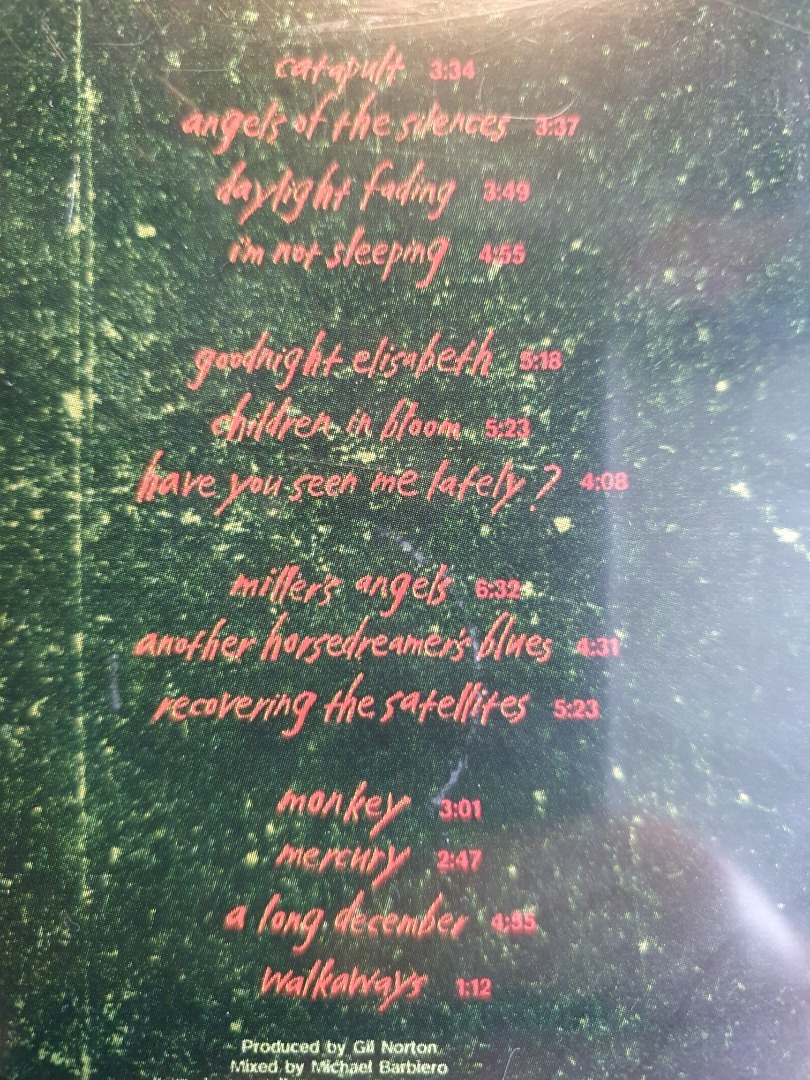 catapult 3:34
angels of the silences 3:37
daylight fading 3:49
i'm not sleeping 4:55
goodnight elisabeth 5:18
children in bloom 5:23
have you seen me lately? 4:08
miller's angels 6:32
another horsedreamer's blues 4:31
recovering the satellites 5:23
monkey 3:01
mercury 2:47
a long december 4:55
walkaways 1:12
Produced by Gil Norton
Mixed by Michael Barbiero